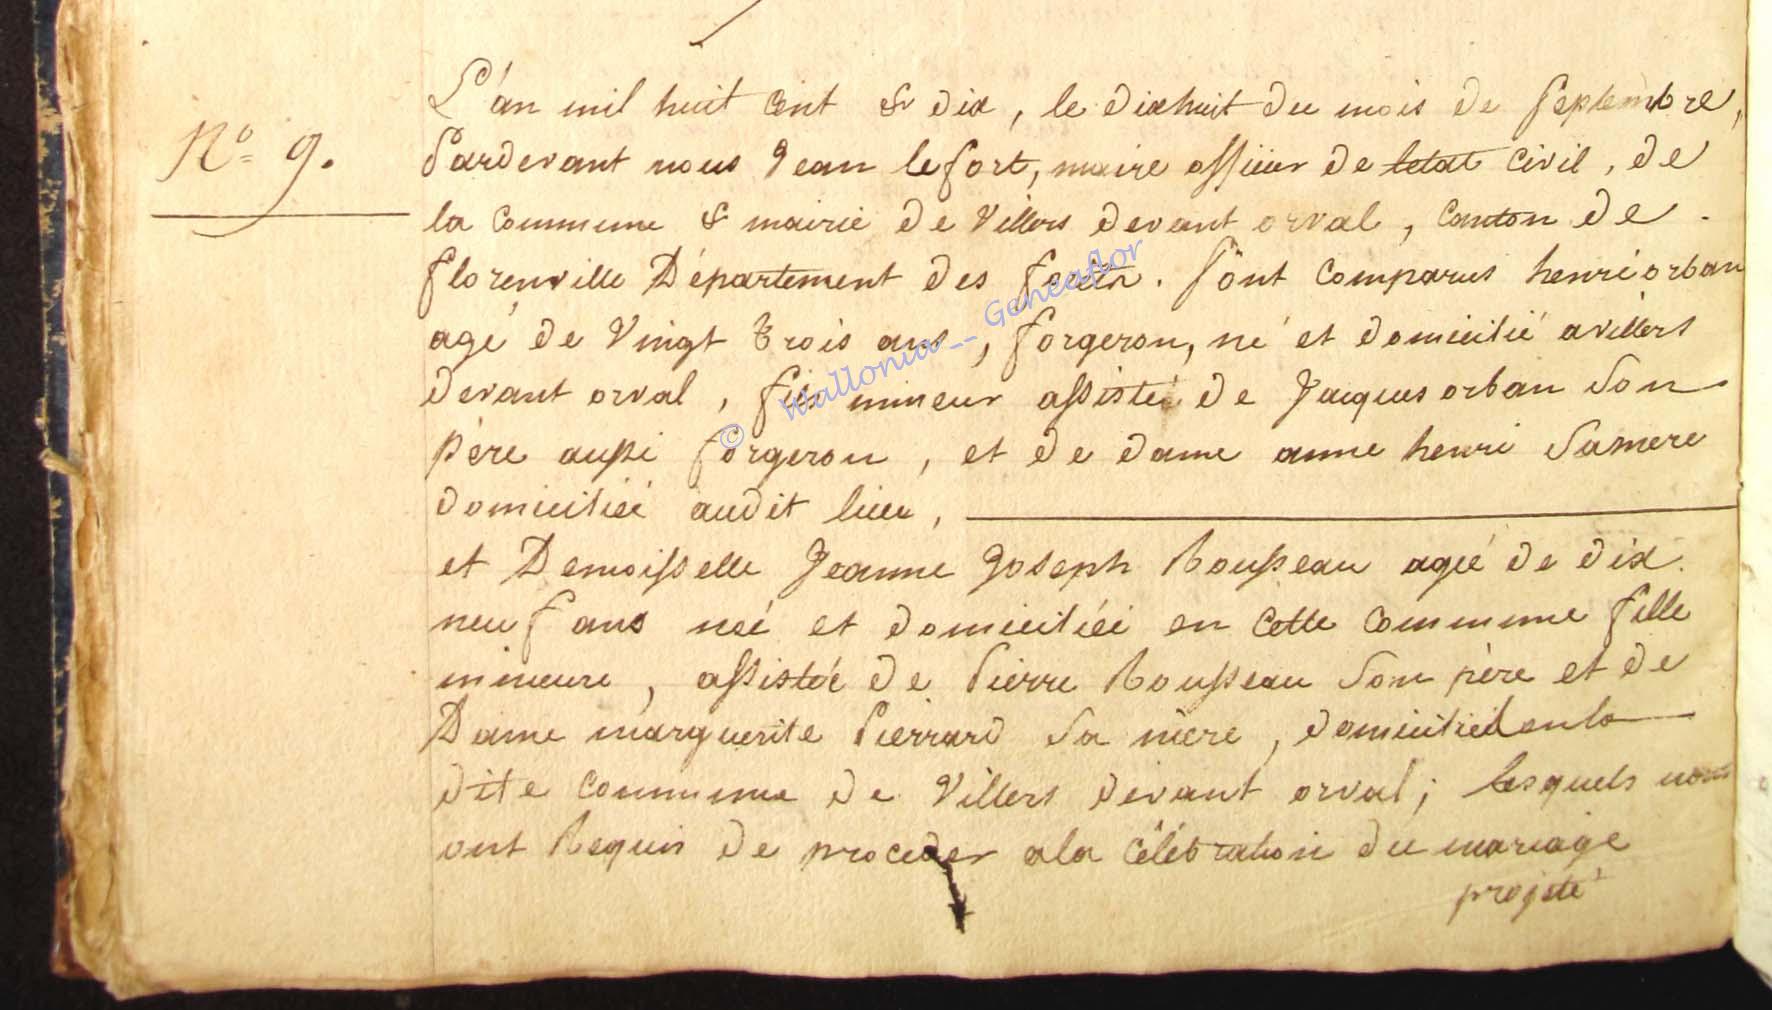 L'an mil huit cent & dix, le dixhuit du mois de septembre,
N.o 9.
Pardevant nous Jean lefort, maire officier de letat civil, de
la commune & mairie de Villers devant orval, canton de
florenville Département des forêts. Sont comparus henri orban
agé de Vingt trois ans, forgeron, né et domicilié a villers
devant orval, fils mineur assisté de Jacques orban Son
père aussi forgeron, et de dame anne henri Samere
domiciliée audit lieu,
et Demoisselle Jeanne Joseph Rousseau agée de dix
neuf ans née et domiciliée en cette commune fille
mineure, assistée de Pierre Rousseau Son père et de
Dame marguerite Pierrard Sa mère, domiciliés en la
dite commune de Villers devant orval; lesquels nous
ont Requis de proceder a la célébration du mariage
projeté
© Wallonia__Geneaflor